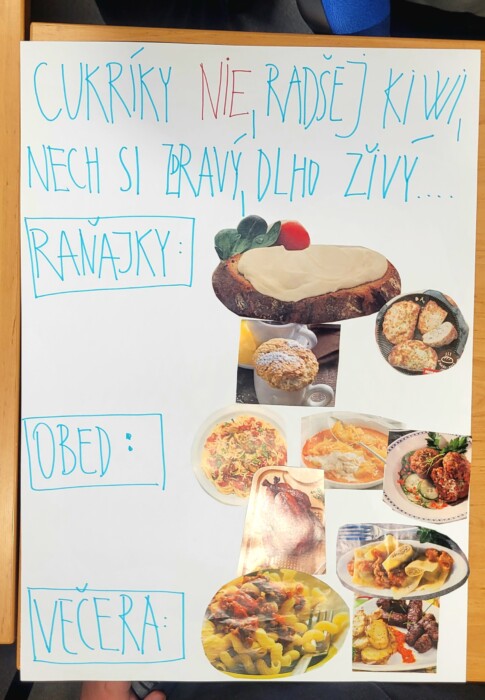 CUKRÍKY NIE, RADŠEJ KIWI,
NECH SI ZDRAVÝ, DLHO ŽIVÝ....
RAŇAJKY:
OBED:
VEČERA: